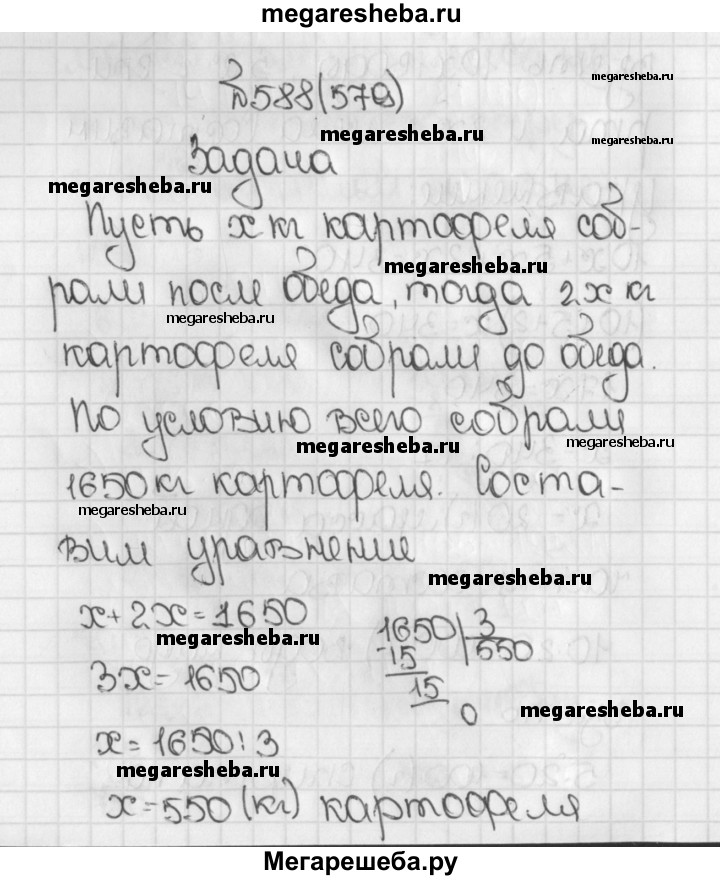 megaresheba.ru
megaresheba.ru
№588(579)
megaresheba.ru
megaresheba.ru
Задача
megaresheba.ru
Пусть x кг картофеля соб-
megaresheba.ru
рали после обеда, тогда 2x кг
megaresheba.ru
картофеля собрали до обеда.
По условию всего собрали
megaresheba.ru
megaresheba.ru
1650 кг картофеля. Соста-
megaresheba.ru
вим уравнение
megaresheba.ru
x+2x=1650
megaresheba.ru
3x=1650
1650 3
-15 550
15
0
megaresheba.ru
x=1650:3
megaresheba.ru
x=550 (кг) картофеля
Мегарешеба.ру